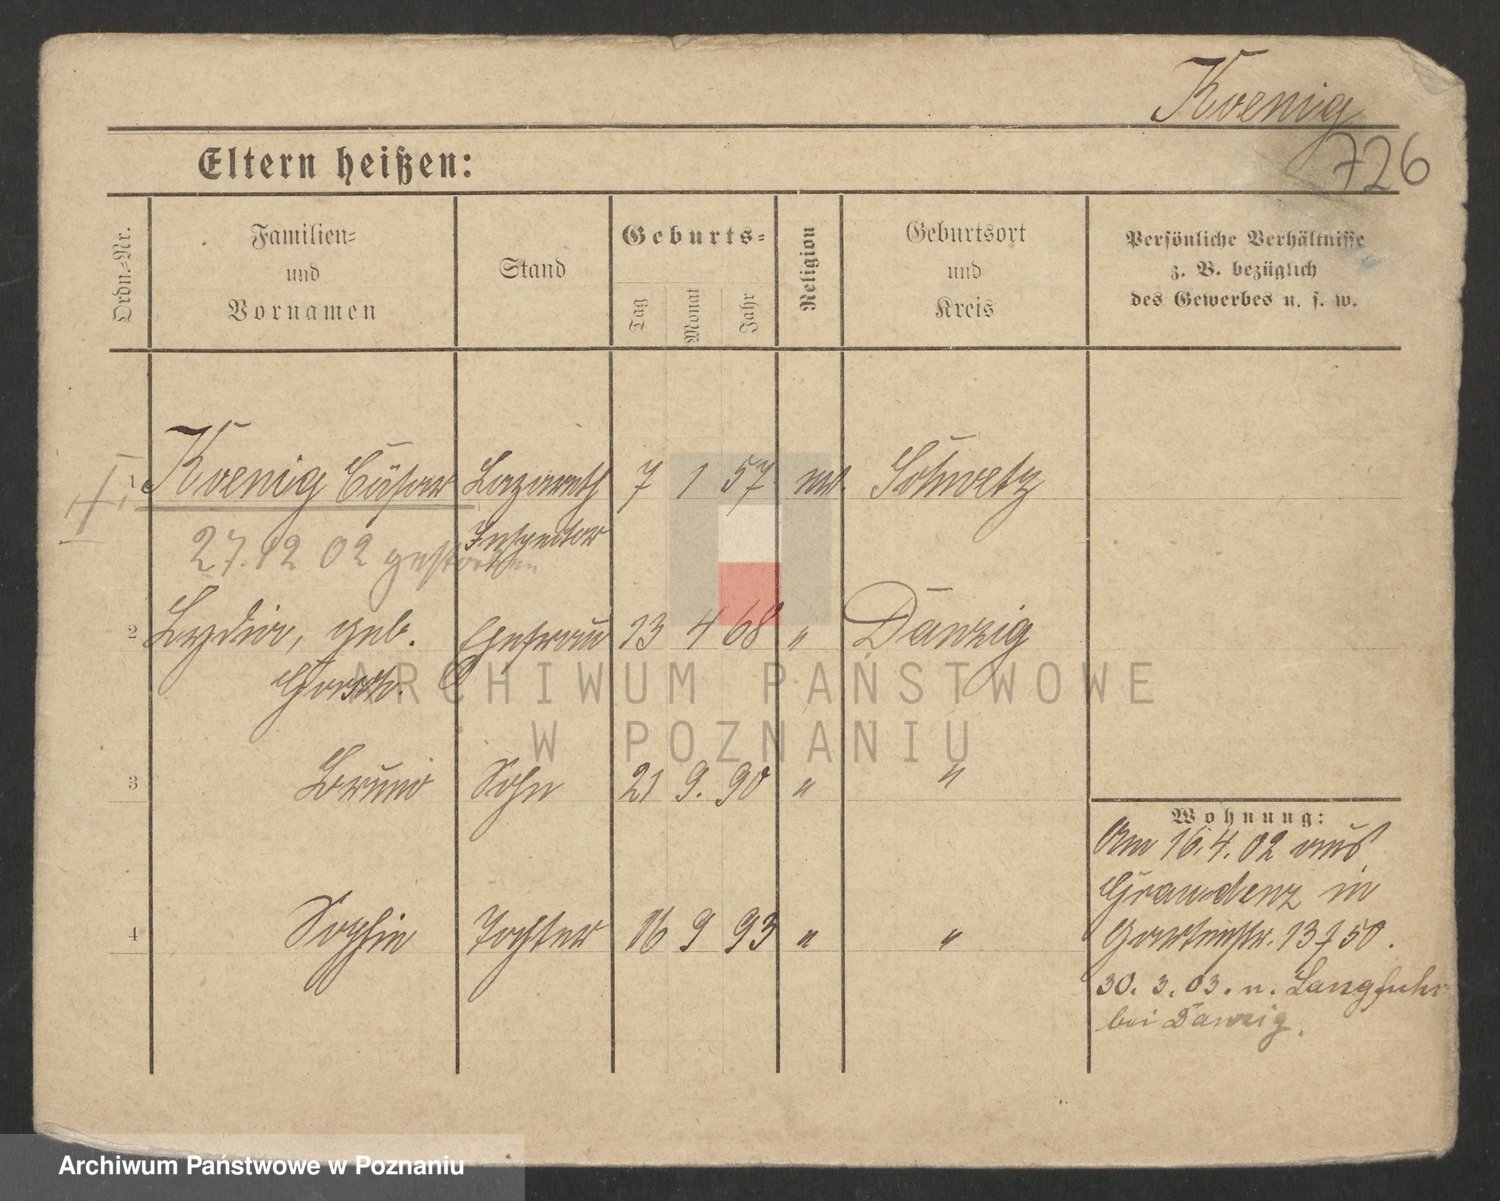 Koenig
726
Eltern heißen:
Ordn.-Nr.
Familien-
und
Vornamen
Stand
Geburts-
Tag
Monat
Jahr
Religion
Geburtsort
und
Kreis
Persönliche Verhältnisse
z. B. bezüglich
des Gewerbes u. s. w.
1 Koenig Cäsar Lazareth 7 1 57 Schwetz
Inspector
27.12 02 gestorben
2 Lydia, geb. Ehefrau 13 4 68 " Danzig
3 Bruno Sohn 21 9. 90 " "
4 Sophie Tochter 16 9 93 " "
Wohnung:
Am 16.4.02 aus
Graudenz in
Gartenstr. 13 f 50.
30. 3. 03. n. Langfuhr
bei Danzig.
ARCHIWUM PAŃSTWOWE
W POZNANIU
Archiwum Państwowe w Poznaniu